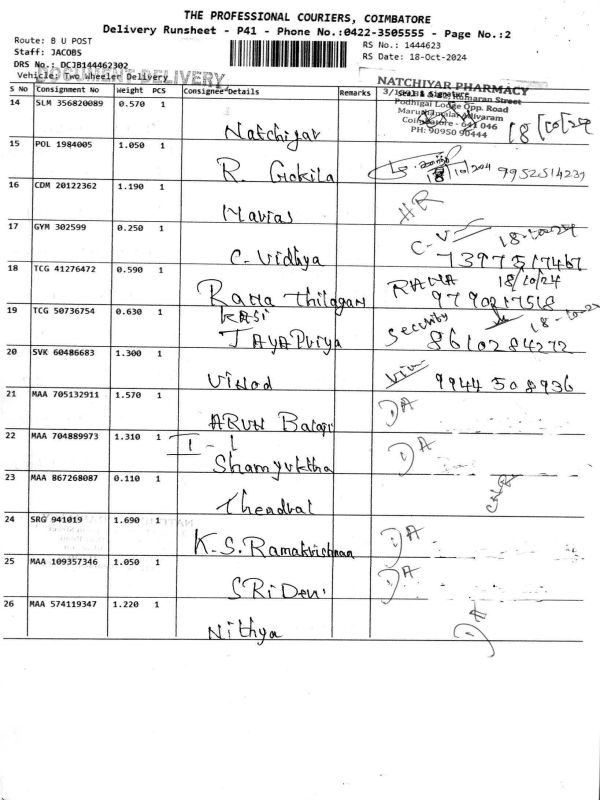 THE PROFESSIONAL COURIERS, COIMBATORE
Delivery Runsheet - P41 - Phone No.:0422-3505555 - Page No.:2
Route: B U POST
RS No.: 1444623
Staff: JACOBS
RS Date: 18-Oct-2024
DRS No.: DCJB144462302
DOCUMENT DELIVERY
Vehicle: Two Wheeler Delivery
NATCHIYAR PHARMACY
S No Consignment No Weight PCS Consignee Details Remarks Seal & Signature
Podhigai Lodge Opp. Road
Coimbatore - 641 046
PH: 90950 90444
14 SLM 356820089 0.570 1 Natchiyar 18/10/24
15 POL 1984005 1.050 1 R. Gokila 18/10/204 9952514239
16 CDM 20122362 1.190 1 Mavias AR
17 GYM 302599 0.250 1 C. Vidhya C-V 18-10-24 7397517467
18 TCG 41276472 0.590 1 Rama Thilagan RAMA 18/10/24 9790217518
19 TCG 50736754 0.630 1 KASI JAYAPriya Security 18-10-24 8610284272
20 SVK 60486683 1.300 1 Vinod 9944508936
21 MAA 705132911 1.570 1 ARUN Balaji DA
22 MAA 704889973 1.310 1 I - 1 Shamyuktha DA
23 MAA 867268087 0.110 1 Thendral CNR
24 SRG 941019 1.690 1 K.S.Ramakrishnan DA
25 MAA 109357346 1.050 1 SRi Devi DA
26 MAA 574119347 1.220 1 Nithya DA